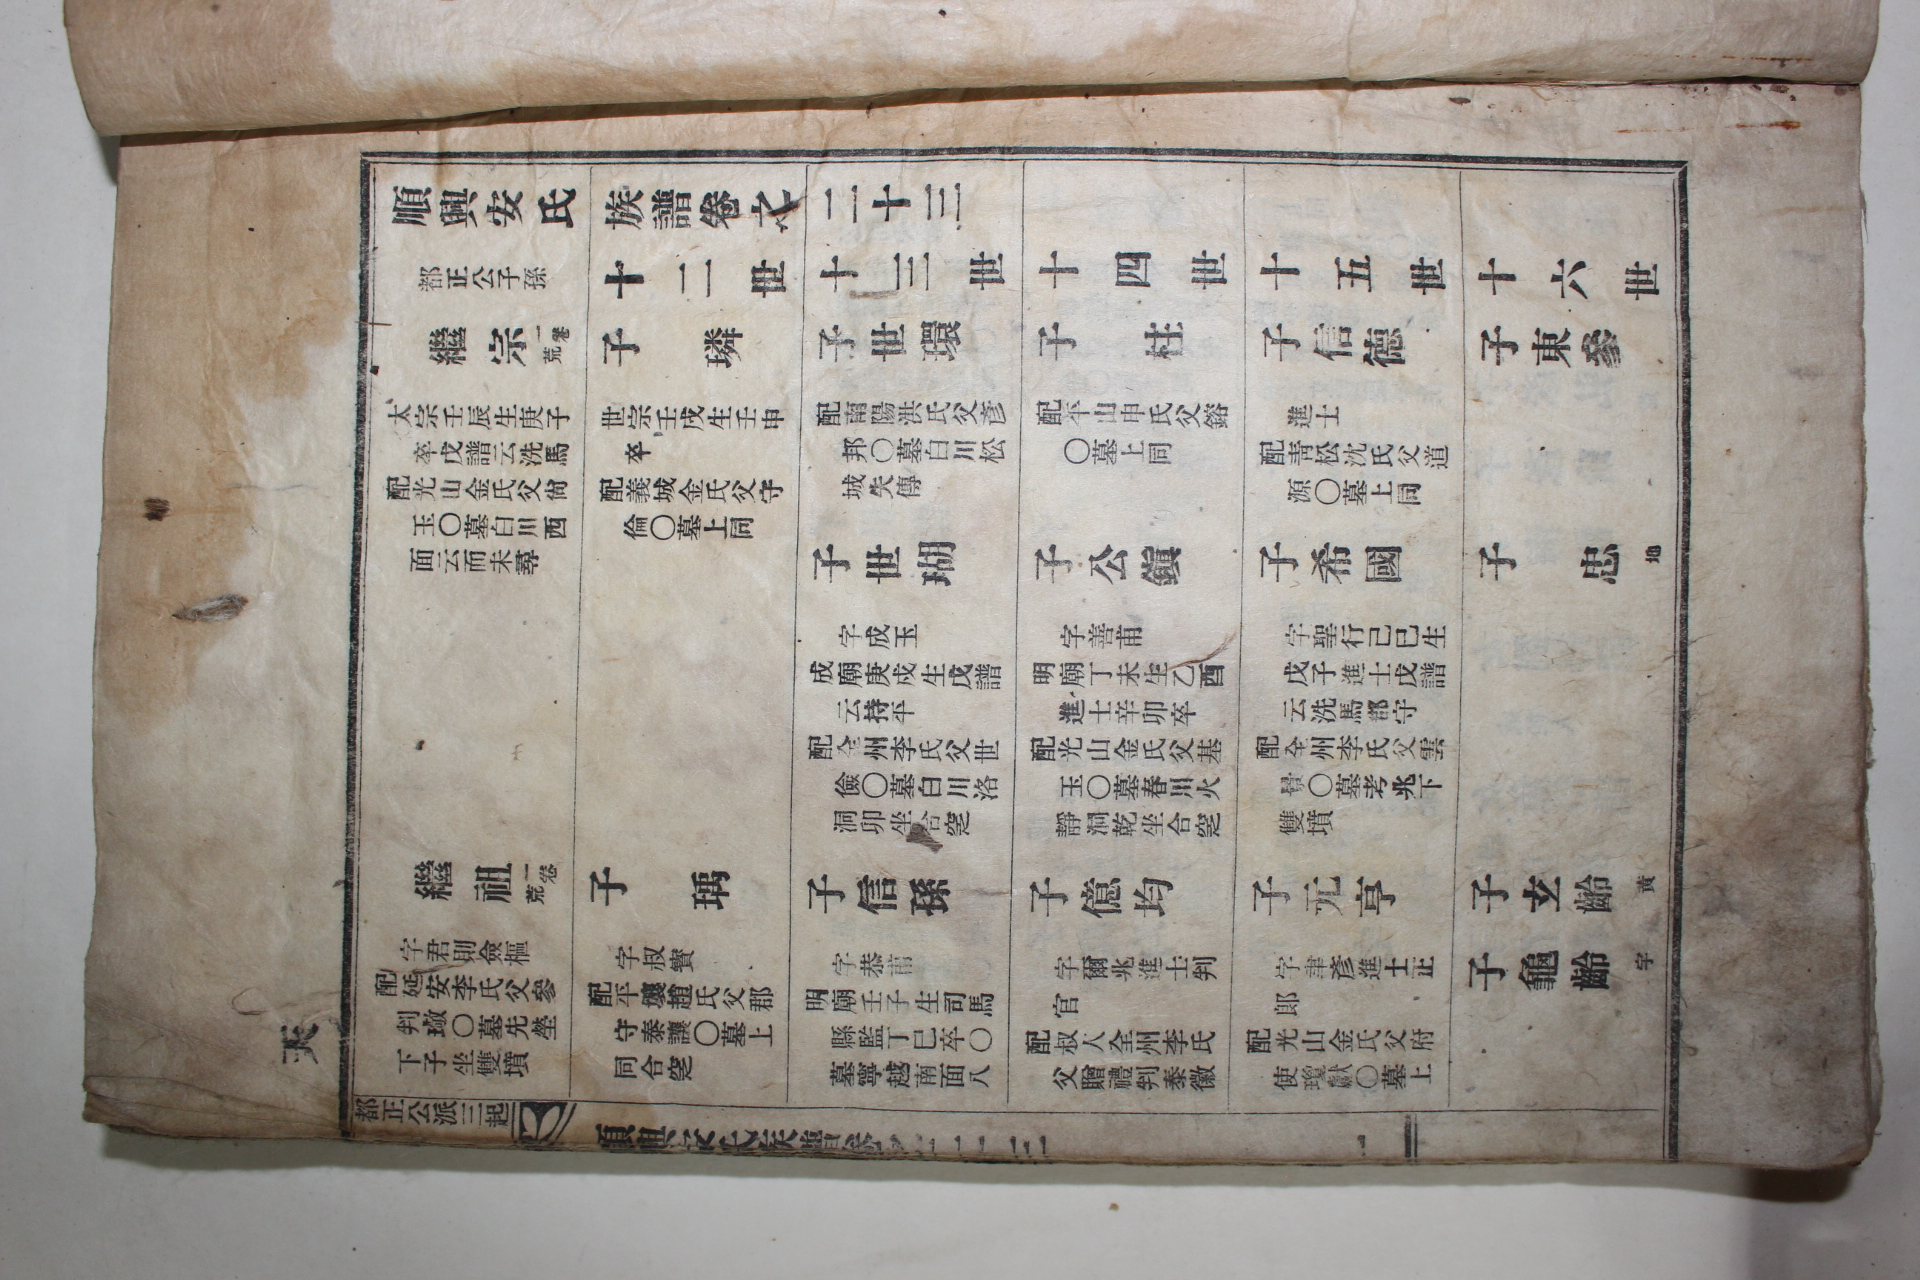 順興安氏族譜卷之二十三
都正公子孫 十二世 十三世 十四世 十五世 十六世
繼宗 一卷荒 子璘 子世環 子柱 子信德 子東參
太宗壬辰生庚子 世宗壬戌生壬申 配南陽洪氏父彥 配平山申氏父鎔 進士
卒戊譜云洗馬 卒 邦〇墓白川松 〇墓上同 配靑松沈氏父道
配光山金氏父尙 配義城金氏父守 城失傳 源〇墓上同
玉〇墓白川西 倫〇墓上同
面云而未尋 子世瑚 子公鎭 子希國 子忠 地
字成玉 字善甫 字聖行己巳生
成廟庚戌生戊譜 明廟丁未生乙酉 戊子進士戊譜
云持平 進士辛卯卒 云洗馬郡守
配全州李氏父世 配光山金氏父基 配全州李氏父雲
儉〇墓白川洛 玉〇墓春川火 〇墓考兆下
洞卯坐合窆 靜洞乾坐合窆 雙墳
繼祖 一卷荒 子瑀 子信孫 子億均 子元亨 子玄齡 黃
字君則僉樞 字叔賓 字恭甫 字爾兆進士判 字聿彥進士正 子龜齡 字
配延安李氏父參 配平壤趙氏父郡 明廟壬子生司馬 官 郎
判璥〇墓先塋 守泰讓〇墓上 縣監丁巳卒〇 配叔人全州李氏 配光山金氏父府
下子坐雙墳 同合窆 墓寧越南面八 父贈禮判泰徽 使瓊獻〇墓上
天
都正公派三起
順興安氏族譜卷之二十三 一